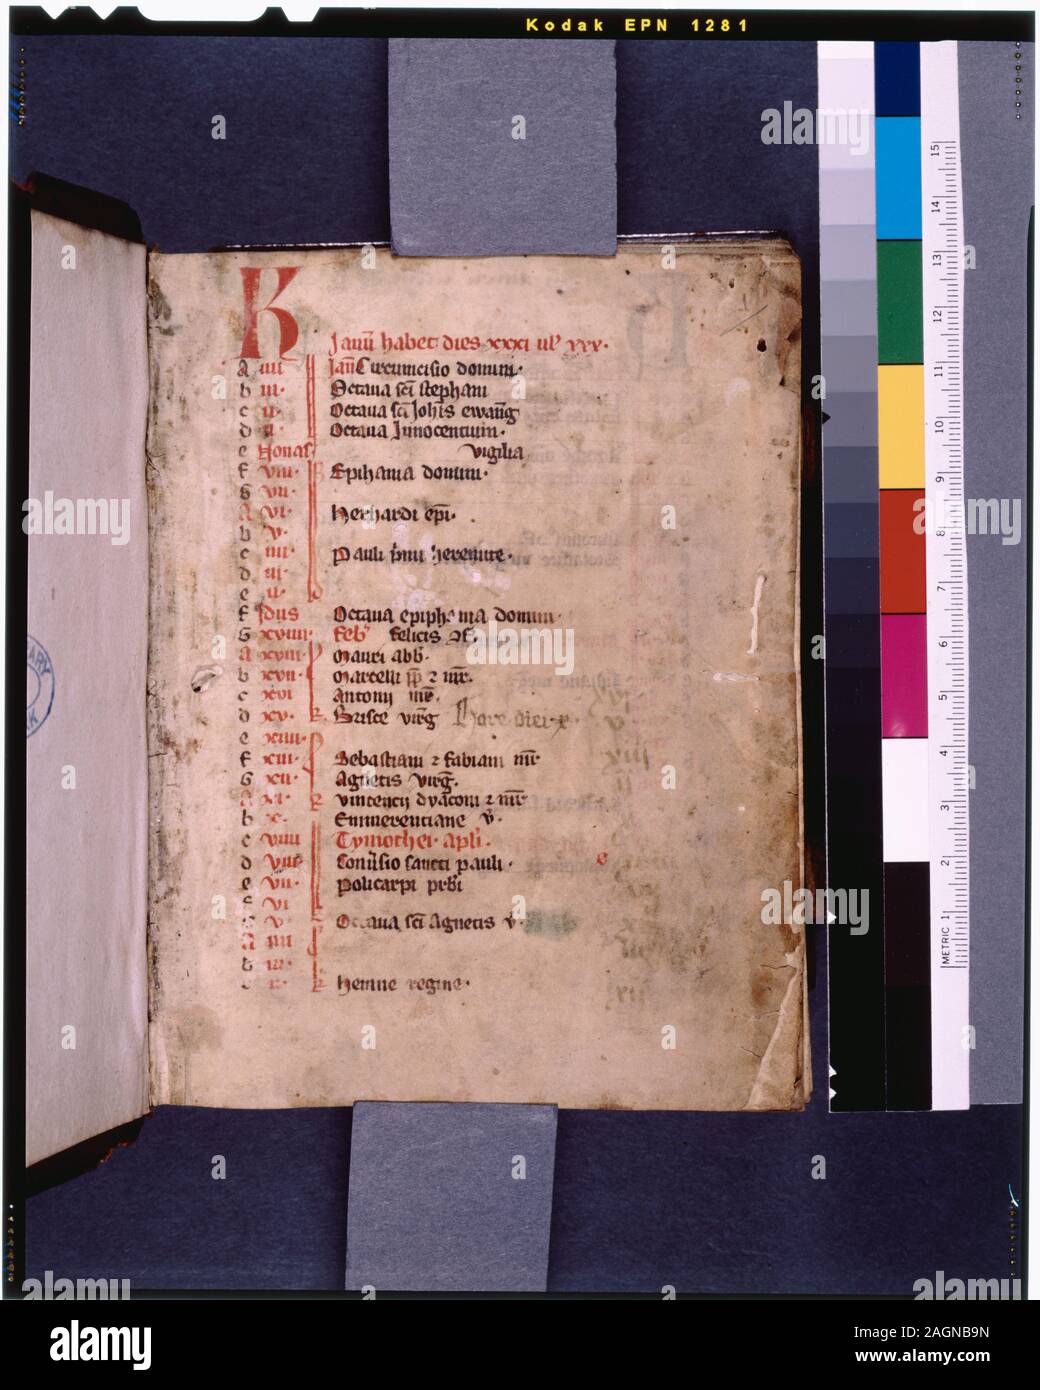 Kodak EPN 1281
K
Januū habet dies xxxi
A iiii Circumcisio domini·
b iii· Octaua scī stephani
c ii· Octaua scī Johīs ewāng
d ii· Octaua Innocentium·
e Nonas vigilia
f viii· Epiphania domini·
G vii·
A vi· Herhardi epī·
b v·
c iiii· Pauli heremite·
d iii·
e ii·
f Idus Octaua epiphania domini·
G xviiii· feb' felicis
A xviii· Mauri abb·
b xvii· Marcelli pp̄ ⁊ mr̄·
c xvi Antonij
d xv· Prisce virḡ
e xiiii·
f xiii· Sebastiani ⁊ fabiani mr̄
G xii· Agnetis virḡ·
A xi· vincencij dyaconi ⁊ mr̄
b x· Emmerenciane v̄·
c viiii Tymothei· apli·
d viii Conūsio sancti pauli·
e vii· Policarpi prb̄i
f vi
G v· Octaua scī Agnetis v̄·
A iiii
b iii·
c ii· regine·
METRIC 1 2 3 4 5 6 7 8 9 10 11 12 13 14 15
a alamy
alamy
Image ID: 2AGNB9N
www.alamy.com